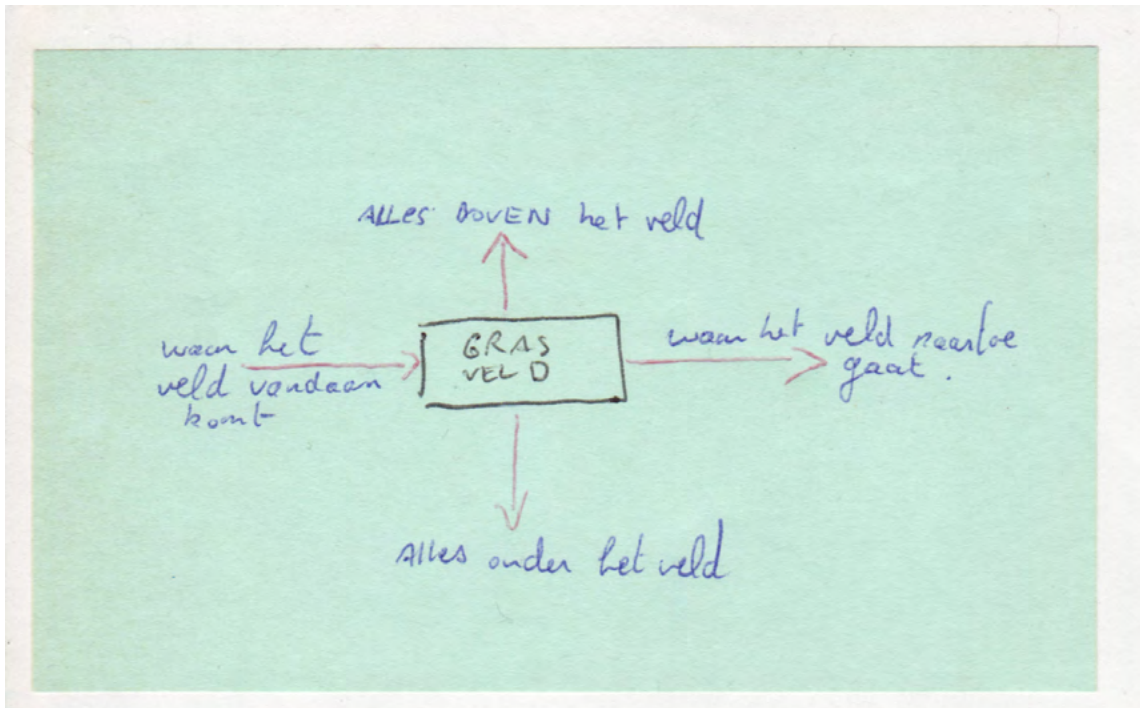 ALLES BOVEN het veld
waar het
veld vandaan
komt
GRAS
VELD
waar het veld naartoe
gaat.
Alles onder het veld